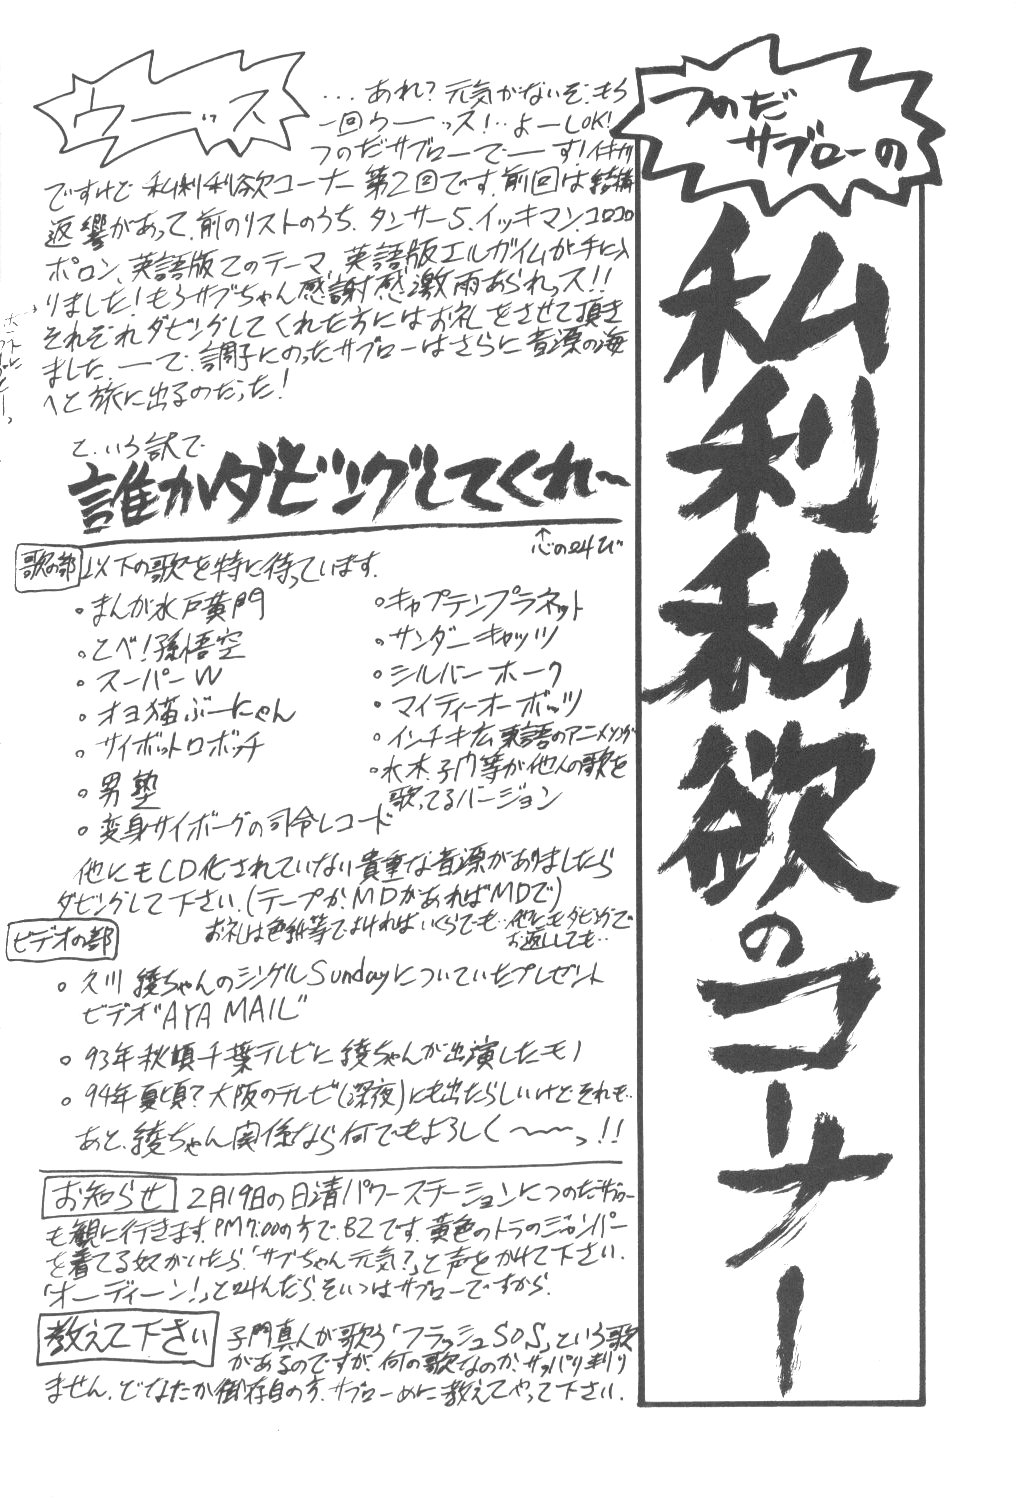 つのだ
サブローの
私利私欲のコーナー
ウーッス
...あれ?元気がないぞ.もう
一回ウーーッス!..よーしOK!
つのだサブローでーーす!イキナリ
ですけど私利私欲コーナー第2回です.前回は結構
返響があって、前のリストのうち、タンサー5、イッキマン、コロコロ
ポロン、英語版Zのテーマ、英語版エルガイムが手に入
りました!もうサブちゃん感謝感激雨あられっス!!
それぞれダビングしてくれた方にはお礼をさせて頂き
ました.ーーで、調子にのったサブローはさらに音源の海
へと旅に出るのだった!
と、いう訳で
誰かダビングしてくれ〜
↑心の叫び
歌の部 以下の歌を特に待っています.
。まんが水戸黄門
。とべ!孫悟空
。スーパーW
。オヨ猫ぶーにゃん
。サイボットロボッチ
。男塾
。変身サイボーグの司令レコード
。キャプテンプラネット
。サンダーキャッツ
。シルバーホーク
。マイティーオーボッツ
。インチキ広東語のアニメソング
。水木、子門等が他人の歌を
歌ってるバージョン
他にもCD化されていない貴重な音源がありましたら
ダビングして下さい.(テープか、MDがあればMDで)
お礼は色紙等でよければいくらでも..他にもダビングで
お返ししても..
ビデオの部
。久川綾ちゃんのシングルSundayについていたプレゼント
ビデオ"AYA MAIL"
。93年秋頃千葉テレビに綾ちゃんが出演したモノ
。94年夏頃?大阪のテレビ(深夜)にも出たらしいけどそれも..
あと、綾ちゃん関係なら何でもよろしく〜〜〜っ!!
お知らせ 2月19日の日清パワーステーションにつのだサブロー
も観に行きます.PM7:00の方でB2です.黄色のトラのジャンパー
を着てる奴がいたら「サブちゃん元気?」と声をかけて下さい.
「オーディーン!」と叫んだら、そいつはサブローですから.
教えて下さい 子門真人が歌う「フラッシュSOS」という歌
があるのですが、何の歌なのか、サッパリ判り
ません.どなたか御存知の方、サブローめに教えてやって下さい.